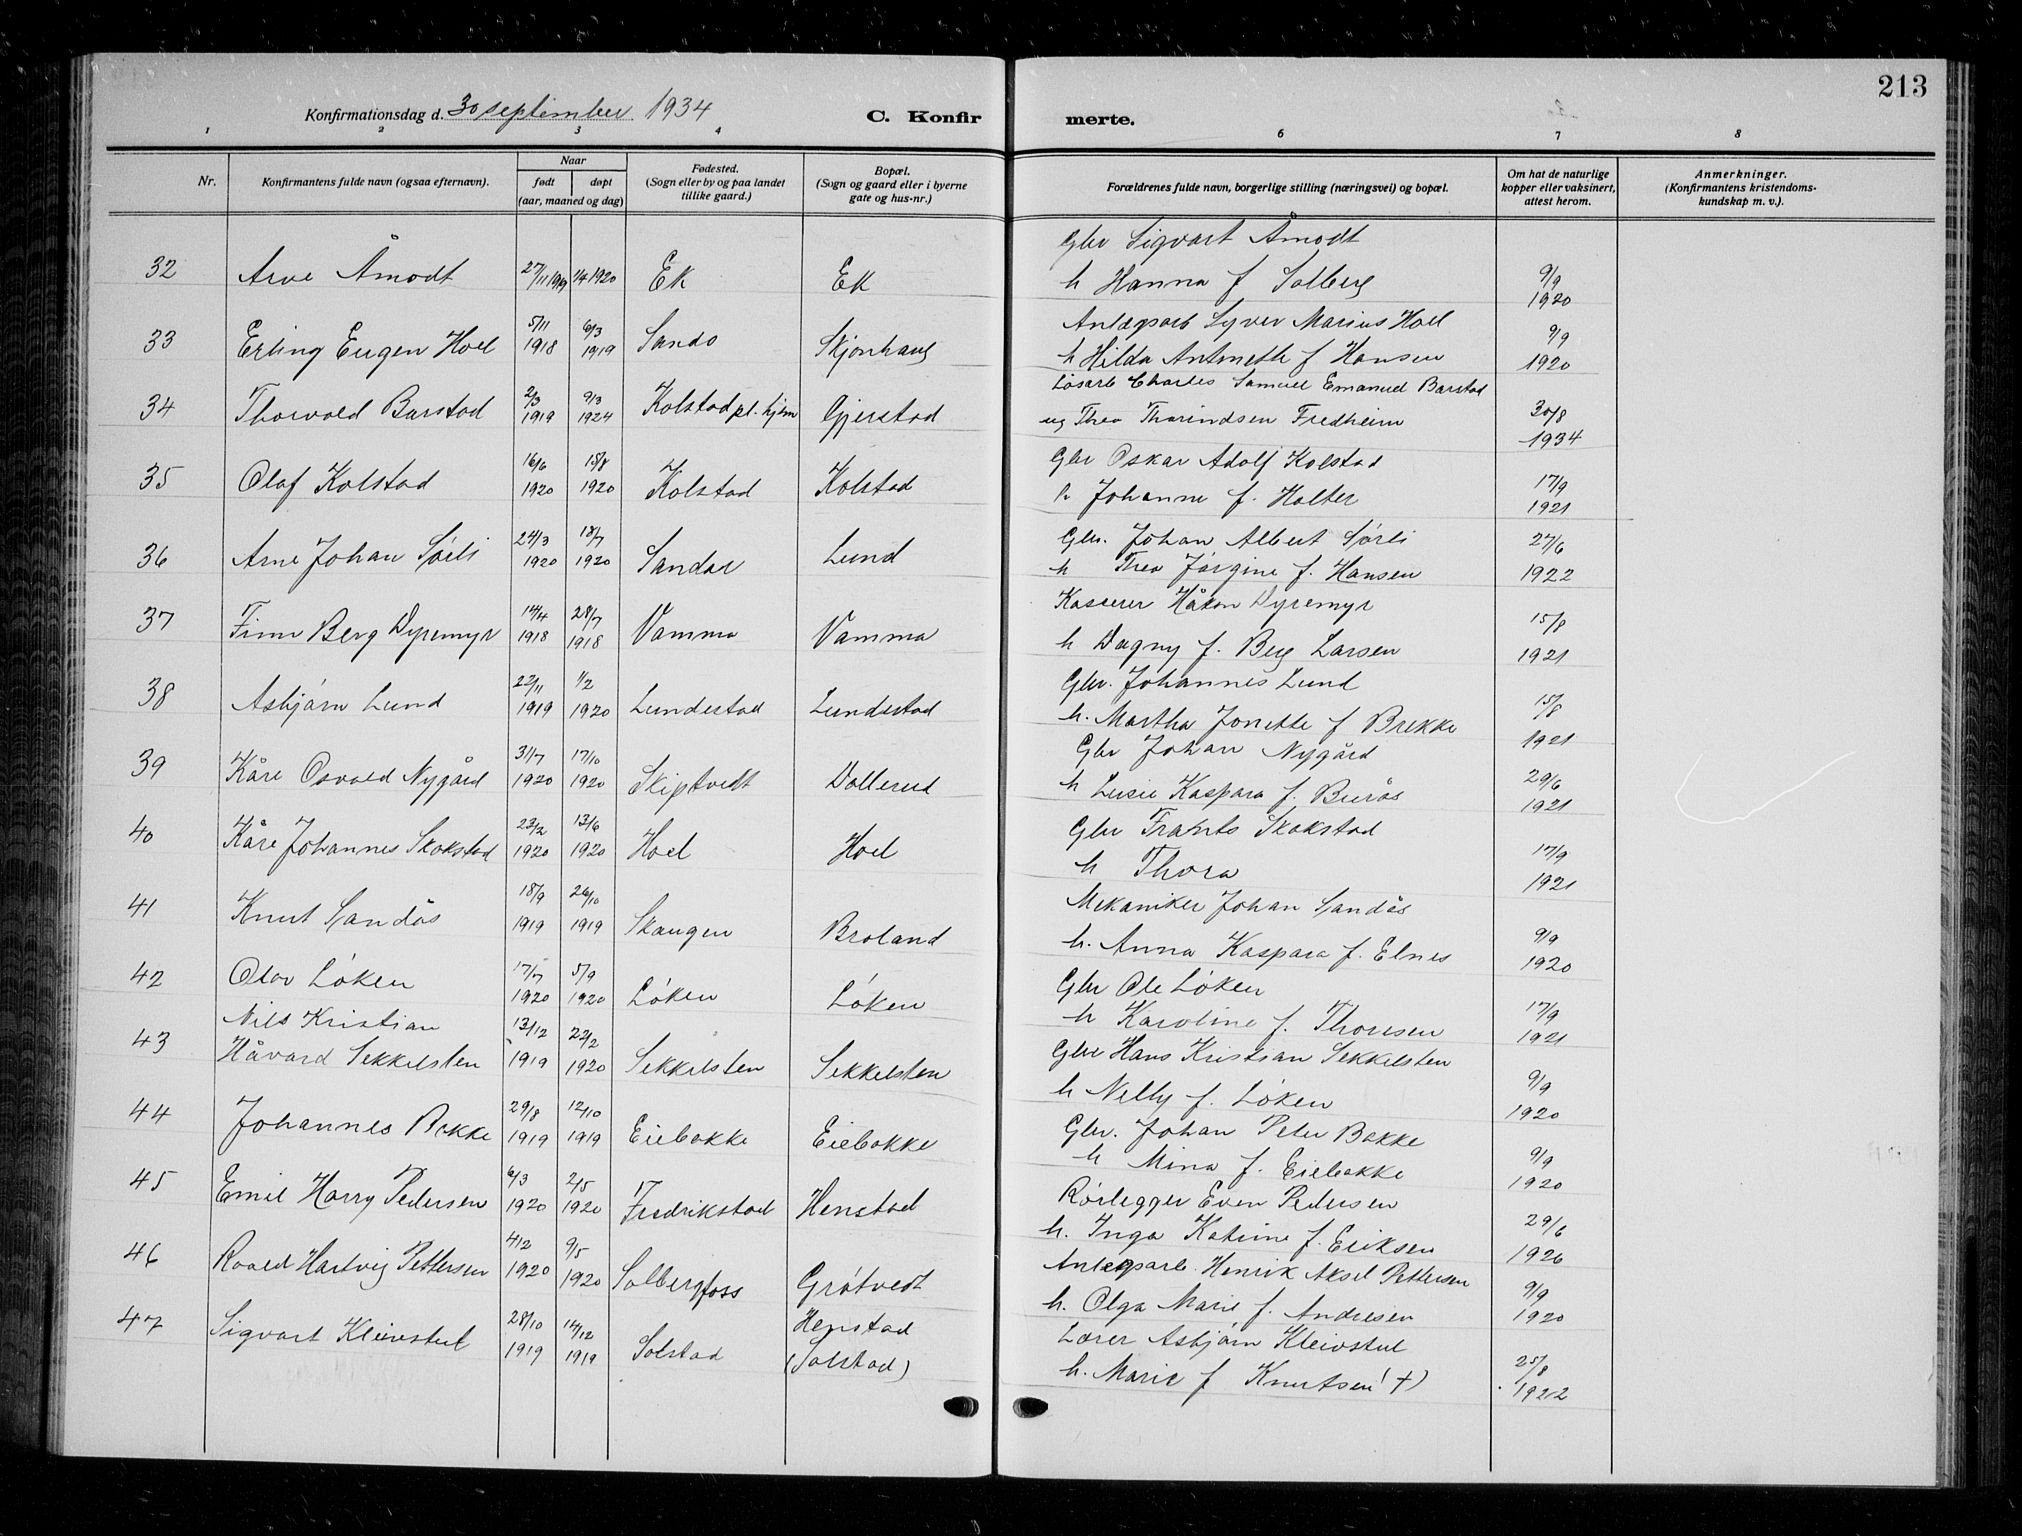 213
Konfirmationsdag d. 30 september 1934
C. Konfirmerte.
1 2 3 4 6 7 8
Nr.
Konfirmantens fulde navn (ogsaa efternavn).
Naar
født
døpt
(aar, maaned og dag)
Fødested.
(Sogn eller by og paa landet
tillike gaard.)
Bopæl.
(Sogn og gaard eller i byerne
gate og hus-nr.)
Forældrenes fulde navn, borgerlige stilling (næringsvei) og bopæl.
Om hat de naturlige
kopper eller vaksinert,
attest herom.
Anmerkninger.
(Konfirmantens kristendoms-
kundskap m. v.).
32 Arve Åmodt 27/11 1919 1/4 1920 Ek Ek
Gbr Sigvart Åmodt
h Hanna f Solberg
9/9 1920
33 Erling Eugen Hoel 5/11 1918 6/3 1919 Sando Skjønhaug
Anlægsarb Syver Marius Hoel
h Hilda Antonette f Hansen
9/9 1920
34 Thorvald Barstad 2/3 1919 9/3 1924 Kolstad pl. hjem Gjerstad
Løsarb Charles Samuel Emanuel Barstad
ug Thea Thorindsen Fredheim
30/8 1934
35 Olaf Kolstad 16/6 1920 15/8 1920 Kolstad Kolstad
Gbr Oskar Adolf Kolstad
h Johanne f. Holter
17/9 1921
36 Arne Johan Sørli 24/3 1920 18/7 1920 Sandar Lund
Gbr. Johan Albert Sørli
h Thea Jørgine f. Hansen
27/6 1922
37 Finn Berg Dyremyr 14/4 1918 28/7 1918 Vamma Vamma
Kasserer Håkon Dyremyr
h Dagny f. Berg Larsen
15/8 1921
38 Asbjørn Lund 22/11 1919 1/2 1920 Lundestad Lundestad
Gbr. Johannes Lund
h. Martha Jonette f Brekke
15/8 1921
39 Kåre Osvald Nygård 31/7 1920 17/10 1920 Skiptvedt Dollerud
Gbr Johan Nygård
h Lusie Kaspara f. Burås
29/6 1921
40 Kåre Johannes Skokstad 23/2 1920 13/6 1920 Hoel Hoel
Gbr Frants Skokstad
h Thora
17/9 1921
41 Knut Sandås 18/9 1919 26/10 1919 Skaugen Broland
Mekaniker Johan Sandås
h. Anna Kaspara f. Elnes
9/9 1920
42 Olav Løken 17/7 1920 5/9 1920 Løken Løken
Gbr Ole Løken
h Karoline f. Thoresen
17/9 1921
43 Nils Kristian
Håvard Sekkelsten 13/12 1919 22/2 1920 Sekkelsten Sekkelsten
Gbr Hans Kristian Sekkelsten
h Nelly f. Løken
9/9 1920
44 Johannes Bakke 29/8 1919 12/10 1919 Eiebakke Eiebakke
Gbr. Johan Peter Bakke
h Mina f. Eiebakke
9/9 1920
45 Emil Harry Pedersen 6/3 1920 2/5 1920 Fredrikstad Henstad
Rørlegger Even Pedersen
h. Inga Katrine f. Eriksen
29/6 1926
46 Roald Hartvig Pettersen 4/2 1920 9/5 1920 Solbergfoss Grøtvedt
Anlegsarb. Henrik Aksel Pettersen
h. Olga Marie f. Andresen
9/9 1920
47 Sigvart Kleivstul 28/10 1919 14/12 1919 Solstad Henstad
(Solstad)
Lærer Asbjørn Kleivstul
h. Marie f Knutsen (†)
25/8 1922